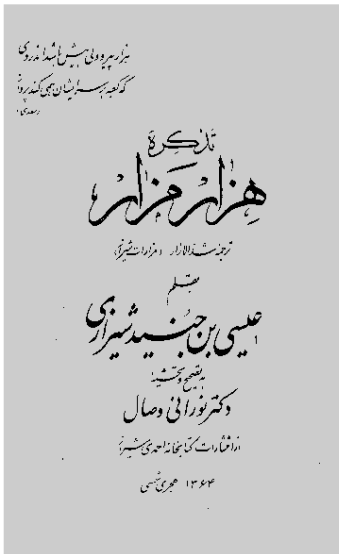 هزار پیر و ولی بیش باشد اندر وی
که کعبه بر سر ایشان همی کند پرواز
«سعدی»
تذکرهٔ
هزار مزار
ترجمهٔ شدالازار (مزارات شیراز)
بقلم
عیسی بن جنید شیرازی
به تصحیح و تحشیهٔ
دکتر نورانی وصال
از انتشارات کتابخانه احمدی شیراز
۱۳۶۴ هجری شمسی